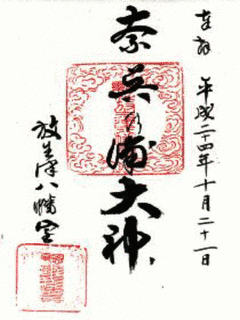 奉拝
平成二四年十月二十一日
奈呉乃浦大神
放生津八幡宮